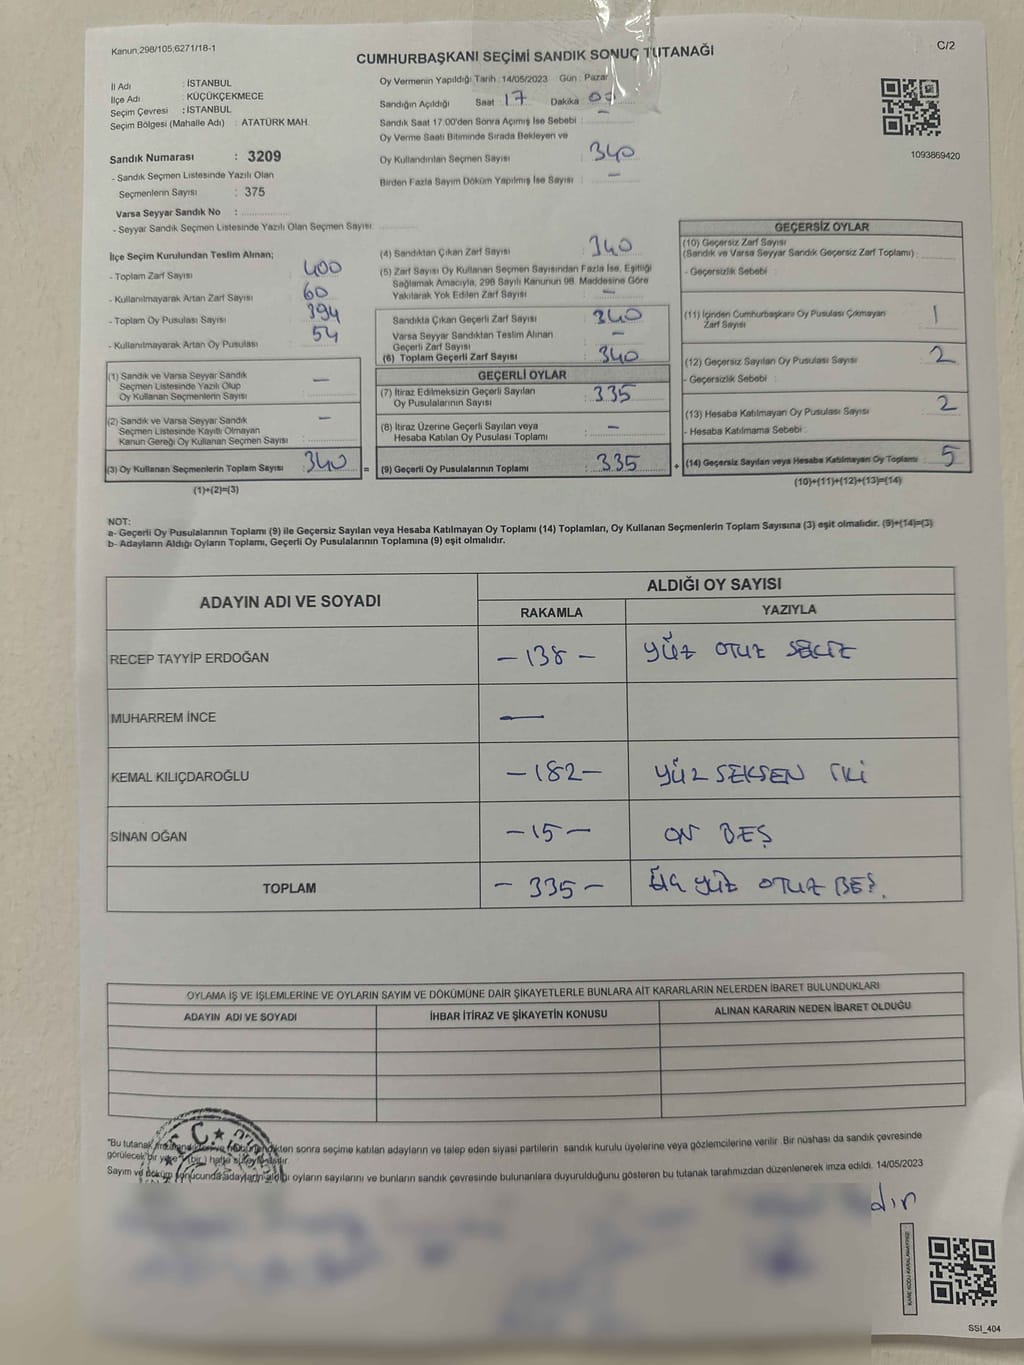 Kanun;298/105;6271/18-1
C/2
CUMHURBAŞKANI SEÇİMİ SANDIK SONUÇ TUTANAĞI
İl Adı : İSTANBUL
İlçe Adı : KÜÇÜKÇEKMECE
Seçim Çevresi : İSTANBUL
Seçim Bölgesi (Mahalle Adı) : ATATÜRK MAH.
Sandık Numarası : 3209
- Sandık Seçmen Listesinde Yazılı Olan
Seçmenlerin Sayısı : 375
Varsa Seyyar Sandık No :
- Seyyar Sandık Seçmen Listesinde Yazılı Olan Seçmen Sayısı:
Oy Vermenin Yapıldığı Tarih : 14/05/2023 Gün : Pazar
Sandığın Açıldığı Saat : 17 Dakika
Sandık Saat 17:00'den Sonra Açımış İse Sebebi : –
Oy Verme Saati Bitiminde Sırada Bekleyen ve
Oy Kullandırılan Seçmen Sayısı : 340
Birden Fazla Sayım Döküm Yapılmış İse Sayısı : –
1093869420
İlçe Seçim Kurulundan Teslim Alınan;
- Toplam Zarf Sayısı : 400
- Kullanılmayarak Artan Zarf Sayısı : 60
- Toplam Oy Pusulası Sayısı : 394
- Kullanılmayarak Artan Oy Pusulası : 54
(1) Sandık ve Varsa Seyyar Sandık
Seçmen Listesinde Yazılı Olup
Oy Kullanan Seçmenlerin Sayısı : –
(2) Sandık ve Varsa Seyyar Sandık
Seçmen Listesinde Kayıtlı Olmayan
Kanun Gereği Oy Kullanan Seçmen Sayısı : –
(3) Oy Kullanan Seçmenlerin Toplam Sayısı : 340 =
(1)+(2)=(3)
(4) Sandıktan Çıkan Zarf Sayısı : 340
(5) Zarf Sayısı Oy Kullanan Seçmen Sayısından Fazla İse, Eşitliği
Sağlamak Amacıyla, 298 Sayılı Kanunun 98. Maddesine Göre
Yakılarak Yok Edilen Zarf Sayısı : –
Sandıkta Çıkan Geçerli Zarf Sayısı : 340
Varsa Seyyar Sandıktan Teslim Alınan
Geçerli Zarf Sayısı : –
(6) Toplam Geçerli Zarf Sayısı : 340
GEÇERLİ OYLAR
(7) İtiraz Edilmeksizin Geçerli Sayılan
Oy Pusulalarının Sayısı : 335
(8) İtiraz Üzerine Geçerli Sayılan veya
Hesaba Katılan Oy Pusulası Toplamı : –
(9) Geçerli Oy Pusulalarının Toplamı : 335 +
GEÇERSİZ OYLAR
(10) Geçersiz Zarf Sayısı
(Sandık ve Varsa Seyyar Sandık Geçersiz Zarf Toplamı) :
- Geçersizlik Sebebi :
(11) İçinden Cumhurbaşkanı Oy Pusulası Çıkmayan
Zarf Sayısı : 1
(12) Geçersiz Sayılan Oy Pusulası Sayısı : 2
- Geçersizlik Sebebi :
(13) Hesaba Katılmayan Oy Pusulası Sayısı : 2
- Hesaba Katılmama Sebebi :
(14) Geçersiz Sayılan veya Hesaba Katılmayan Oy Toplamı : 5
(10)+(11)+(12)+(13)=(14)
NOT:
a- Geçerli Oy Pusulalarının Toplamı (9) ile Geçersiz Sayılan veya Hesaba Katılmayan Oy Toplamı (14) Toplamları, Oy Kullanan Seçmenlerin Toplam Sayısına (3) eşit olmalıdır. (9)+(14)=(3)
b- Adayların Aldığı Oyların Toplamı, Geçerli Oy Pusulalarının Toplamına (9) eşit olmalıdır.
ADAYIN ADI VE SOYADI
ALDIĞI OY SAYISI
RAKAMLA YAZIYLA
RECEP TAYYİP ERDOĞAN – 138 – YÜZ OTUZ SEKİZ
MUHARREM İNCE –
KEMAL KILIÇDAROĞLU – 182 – YÜZ SEKSEN İKİ
SİNAN OĞAN – 15 – ON BEŞ
TOPLAM – 335 – ÜÇ YÜZ OTUZ BEŞ.
OYLAMA İŞ VE İŞLEMLERİNE VE OYLARIN SAYIM VE DÖKÜMÜNE DAİR ŞİKAYETLERLE BUNLARA AİT KARARLARIN NELERDEN İBARET BULUNDUKLARI
ADAYIN ADI VE SOYADI İHBAR İTİRAZ VE ŞİKAYETİN KONUSU ALINAN KARARIN NEDEN İBARET OLDUĞU
"Bu tutanak sonra seçime katılan adayların ve talep eden siyasi partilerin sandık kurulu üyelerine veya gözlemcilerine verilir. Bir nüshası da sandık çevresinde
görülecek bir yere (bir) hafta
Sayım ve döküm sonucunda adayların aldığı oyların sayılarını ve bunların sandık çevresinde bulunanlara duyurulduğunu gösteren bu tutanak tarafımızdan düzenlenerek imza edildi. 14/05/2023
T.C.
dır
KARE KODU KARALAMAYINIZ
SSI_404